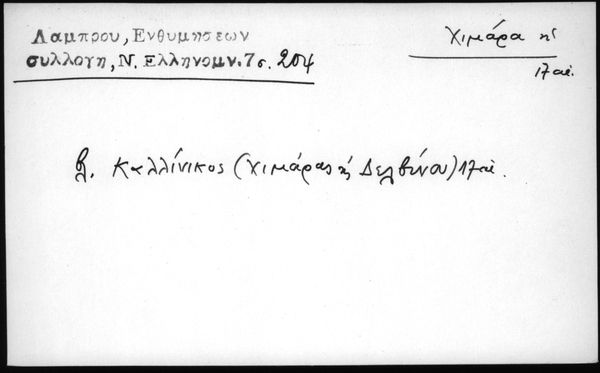 Λαμπρου, Ενθυμησεων
συλλογη, Ν. Ελληνομν. 7 σ. 204
Χιμάρα κ'
17 αἰ.
βλ. Καλλίνικος (Χιμάρας κ' Δελβίνου) 17 αἰ.